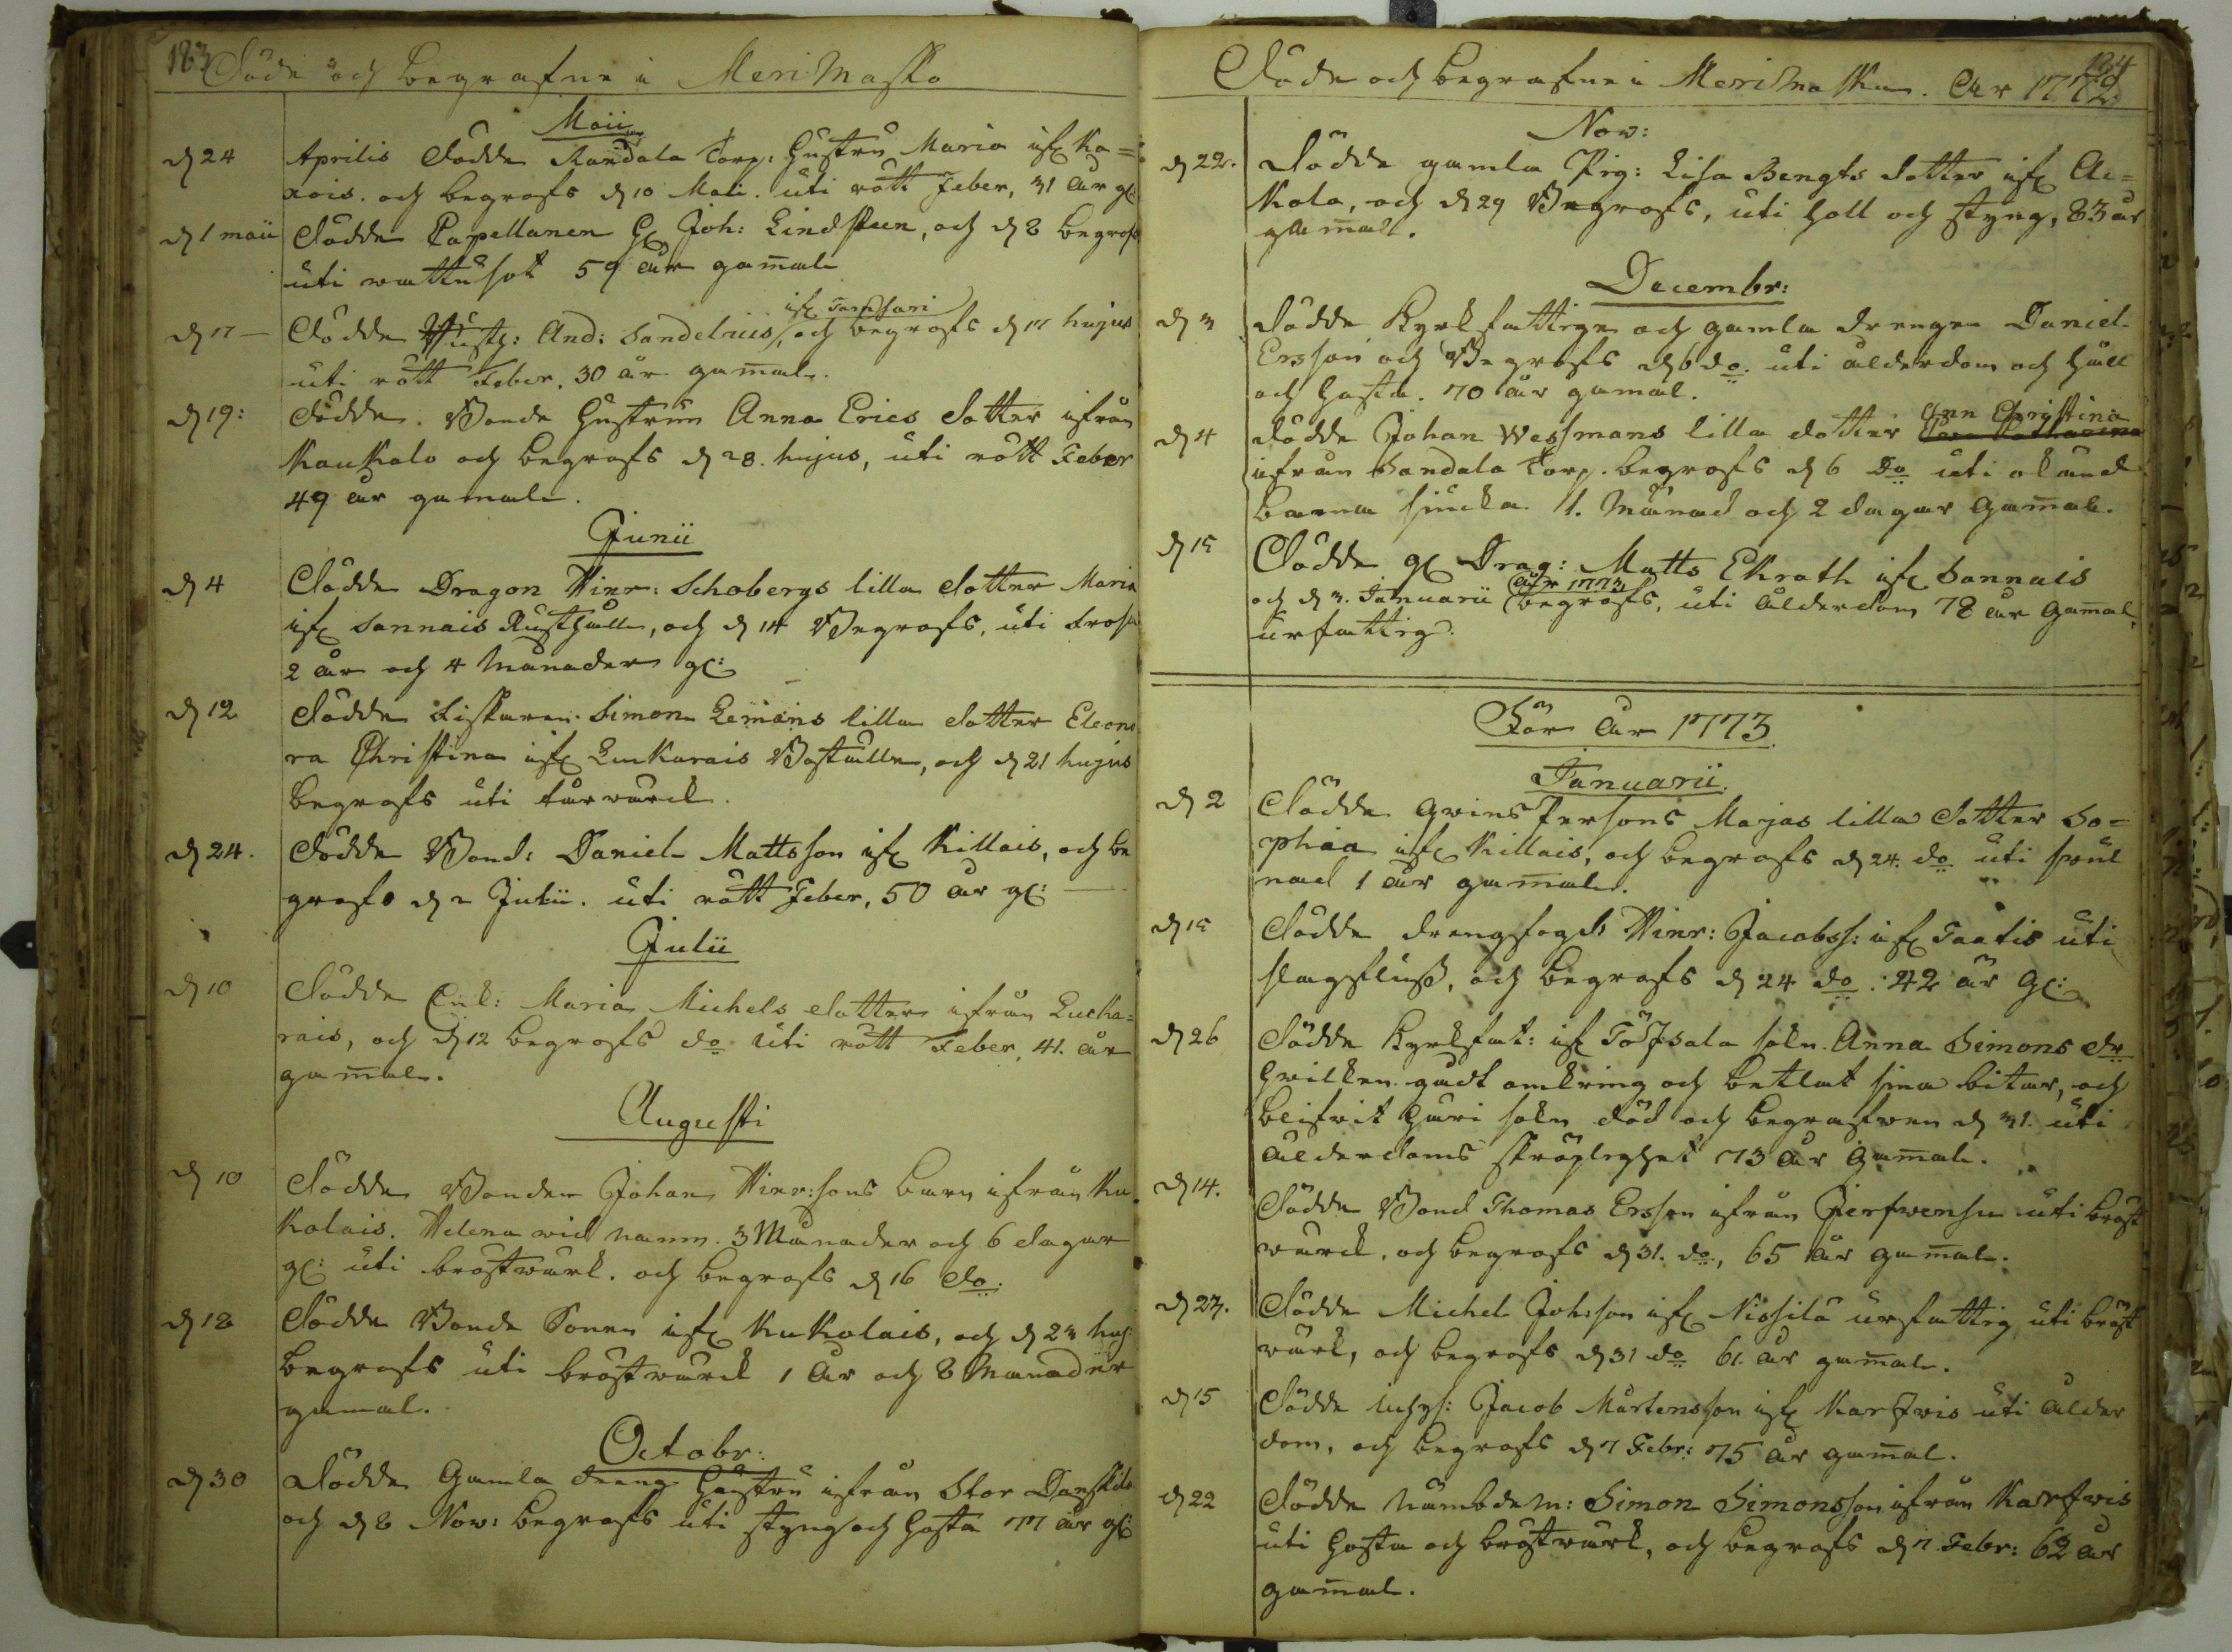 183 Döde och begrafne i MeriMasko
Maii
d 24 Aprilis Dödde Randala Torp: Hustru Maria ifr Ka=
xois. och begrofs d 10 Maii. uti rött Feber, 31 år gl:
d 1 maii Dödde Capellanen H Joh: Lindsteen, och d 8 begrofs
uti wattusot 59 år gam̄al
ifr Tamsari
d 17 — Dödde And: Sandelnus, och begrofs d 17 hujus
uti rött Feber. 30 år gam̄al.
d 19: Dödde. Bonde Hustrun Anna Erics dotter ifrån
Kaukalo och begrofs d 28. hujus, uti rött Feber
49 år gamal.
Junii
d 4 Dödde Dragon Hinr: Schobergs lilla dotter Maria
ifr Sannais Rusthåll, och d 14 Begrofs, uti frosa
2 år och 4 Månader gl:
d 12 Dödde Fiskaren Simon Lemans lilla dotter Eleono
ra Christina ifr Luukarais Boställe, och d 21 hujus
begrofs uti turwurck.
d 24. Dödde Bond: Daniel Mattsson ifr Killais, och be
grofs d 2 Julii. uti rött Feber, 50 år gl: —
Julii
d 10 Dödde Enk: Maria Michels dotter ifrån Lucka=
rais, och d 12 begrofs do uti rött Feber, 41. år
gam̄al.
Augusti
d 10 Dödde Bonden Johan Hinr:sons barn ifrån Ku
Kolais. Helena vid namn. 3 Månader och 6 dagar
gl: uti bröstwurk. och begrofs d 16 do.
d 18 Dödde Bonde Sonen ifr KuKolais, och d 23 huj:
begrofs uti bröstwurck 1 år och 8 Månader
gamal.
Octobr:
d 30 Dödde Gamla dreng Hustru ifrån Stor Danskila
och d 8 Nov: begrofs uti styng och hosta 77 år gl:
184
Döde och begrafne i MeriMasku. År 1772
Nov:
d 22. Dödde gamla Pig: Lisa Bengts dotter ifr Ai=
Kola, och d 29 Begrofs, uti håll och styng, 83 år
gam̄al.
Decembr:
d 3 Dödde Kyrkfattige och gamla drengen Daniel
Ersson och Begrofs d 6 do. uti ålderdom och håll
och hosta. 70 år gamal.
Ann Christina
d 4 Dödde Johan Wessmans lilla dotter
ifrån Sandala Torp. begrofs d 6 do uti okänd
barna siucka. 1. Månad och 2 dagar gam̄al.
d 15 Dödde gl Drag: Matts Ekroth ifr Sannais
År 1773
och d 3. Januarii begrofs, uti ålderdom 78 år gam̄al,
urfattig.
För år 1773.
Januarii.
d 2 Dödde Persons Majas lilla dotter So=
phia ifr Killais, och begrofs d 24. do uti
nad 1 år gam̄al.
d 15 Dödde drengfogd: Hinr: Jacobss: ifr Taatis uti
slagfluss, och begrofs d 24 do. 42 år gl:
d 26 Dödde Kyrkfat: ifr Töfsala sokn. Anna Simons dr
hwilken gådt omkring och betlat sina bitar, och
blifwit häri sokn död och begrafwen d 31. uti
ålderdoms skröplighet 73 år gam̄al.
d 14. Dödde Bond Thomas Ersson ifrån Jerfwensu uti bröst
wurck, och begrofs d 31. do, 65 år gam̄al.
d 27. Dödde Michel Joh:son ifr Nissilä urfattig uti bröst
wurk, och begrofs d 31 do 61. år gam̄al.
d 15 Dödde Inhys: Jacob Mårtensson ifr Karfwis uti ålder
dom, och begrofs d 7 Febr: 75 år gam̄al.
d 22 Dödde Nämbdem: Simon Simonsson ifrån Karfwis
uti hosta och bröstwurk, och begrofs d 7. Febr: 62 år
gam̄al.